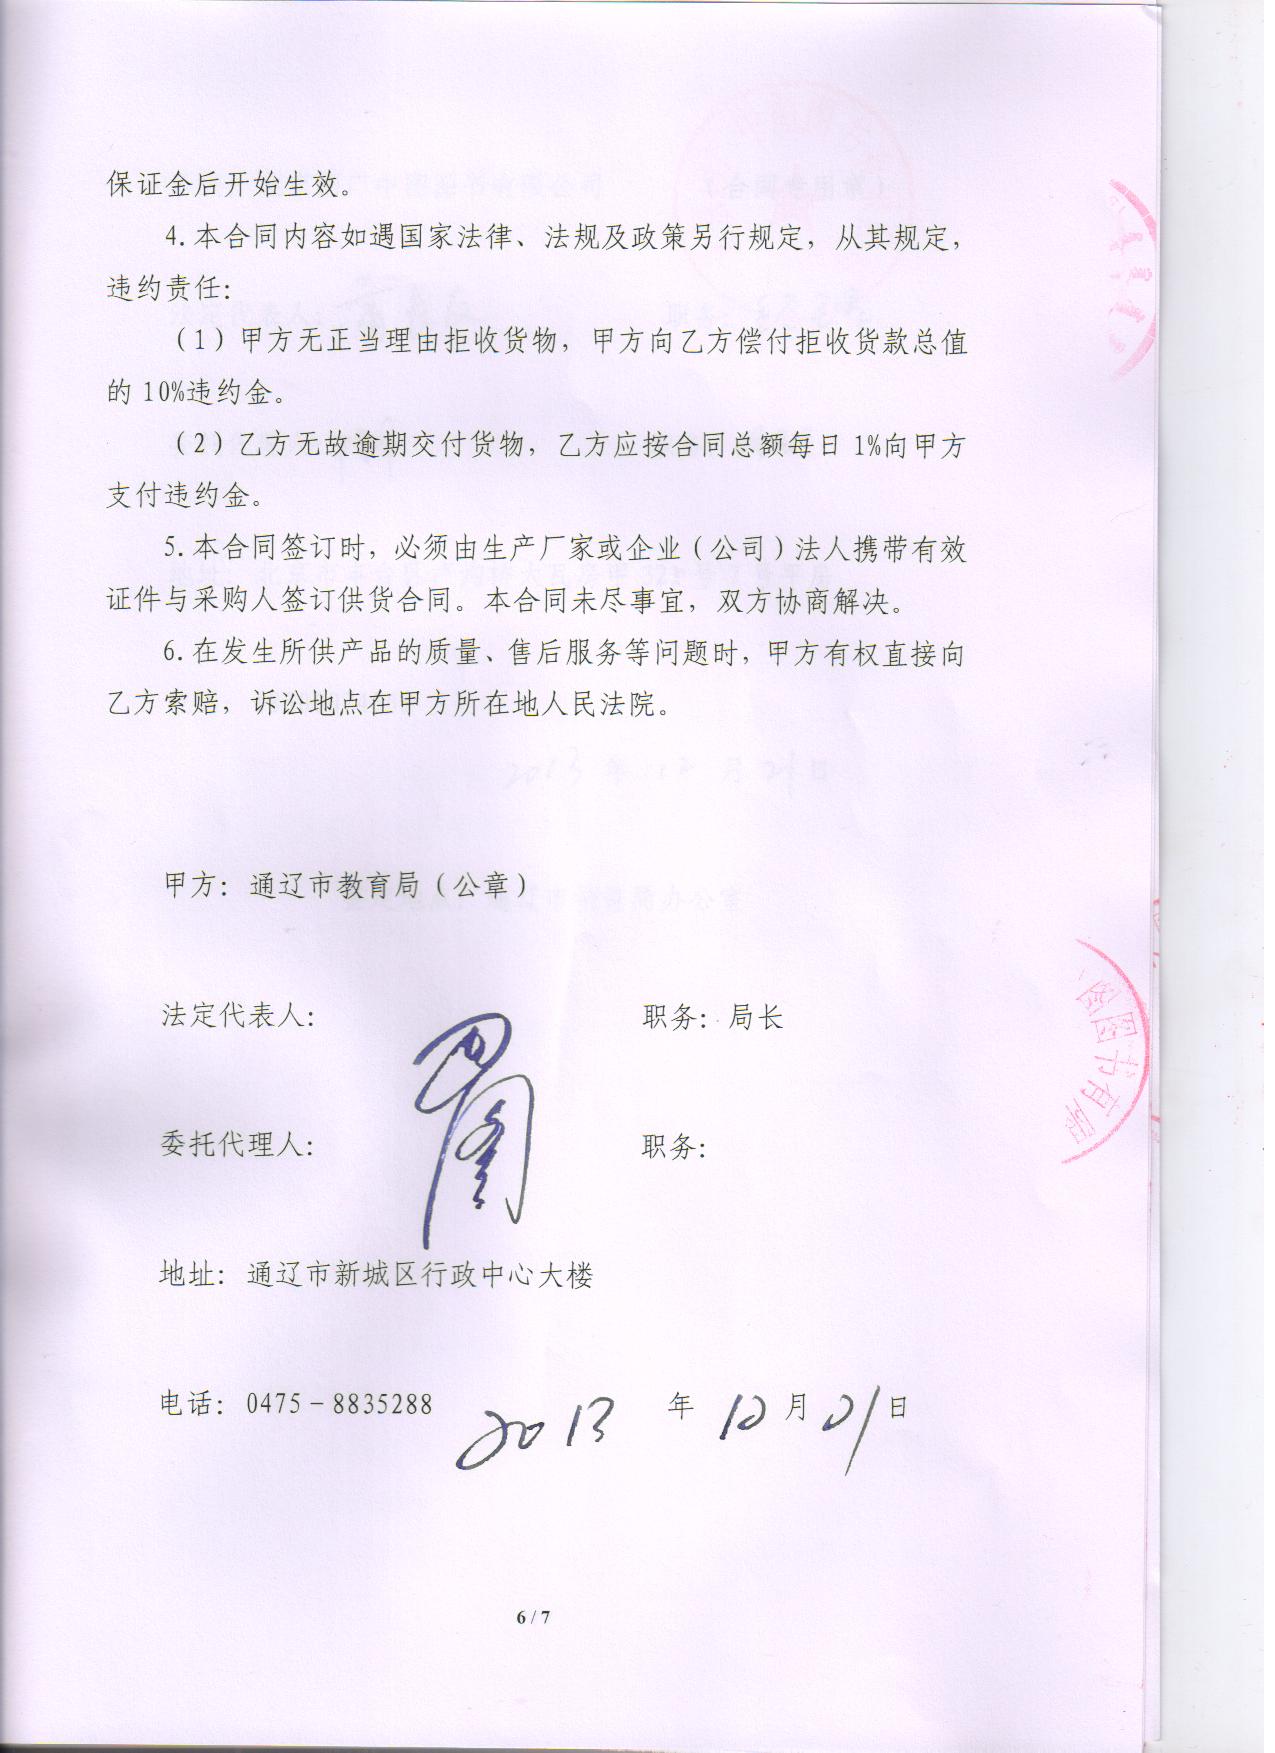 保证金后开始生效。
4.本合同内容如遇国家法律、法规及政策另行规定，从其规定，
违约责任：
（1）甲方无正当理由拒收货物，甲方向乙方偿付拒收货款总值
的10%违约金。
（2）乙方无故逾期交付货物，乙方应按合同总额每日1%向甲方
支付违约金。
5.本合同签订时，必须由生产厂家或企业（公司）法人携带有效
证件与采购人签订供货合同。本合同未尽事宜，双方协商解决。
6.在发生所供产品的质量、售后服务等问题时，甲方有权直接向
乙方索赔，诉讼地点在甲方所在地人民法院。
甲方：通辽市教育局（公章）
法定代表人： 职务：局长
图书有限
委托代理人： 职务：
地址：通辽市新城区行政中心大楼
电话：0475－8835288 2013 年 12 月 21 日
6 / 7